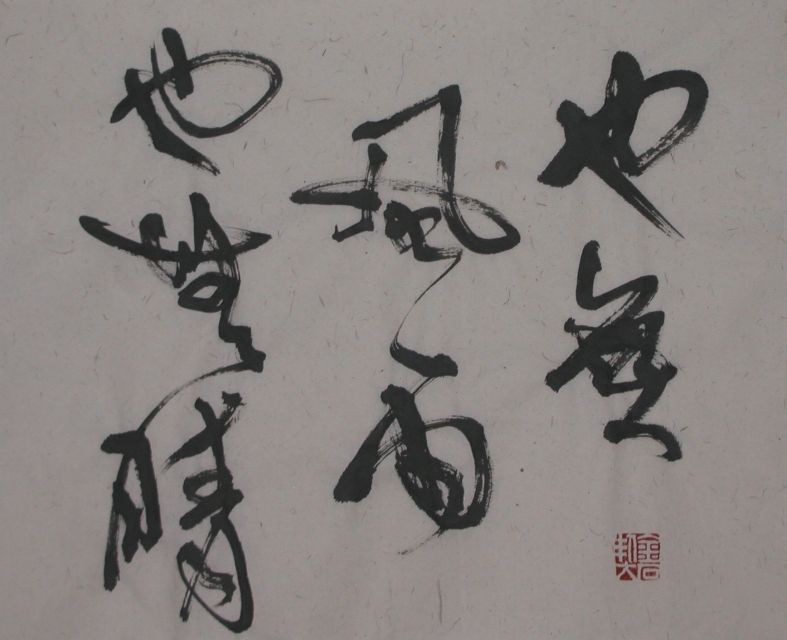 也無
風雨
也無晴